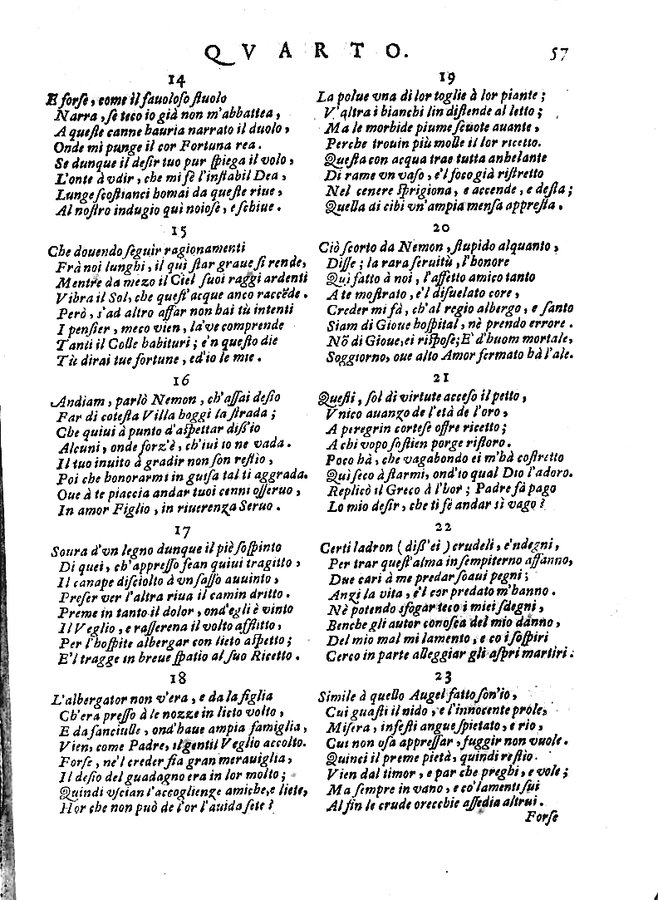 QVARTO. 57
14
E forſe, come il fauoloſo ſtuolo
Narra, ſe teco io già non m'abbattea,
A queſte canne hauria narrato il duolo,
Onde mi punge il cor Fortuna rea.
Se dunque il deſir tuo pur ſpiega il volo,
L'onte à vdir, che mi fè l'inſtabil Dea,
Lunge ſcoſtianci homai da queſte riue,
Al noſtro indugio qui noioſe, e ſchiue.
15
Che douendo ſeguir ragionamenti
Frà noi lunghi, il qui ſtar graue ſi rende,
Mentre da mezo il Ciel ſuoi raggi ardenti
Vibra il Sol, che queſt'acque anco raccēde.
Però, s'ad altro affar non hai tù intenti
I penſier, meco vien, la've comprende
Tanti il Colle habituri; e'n queſto die
Tù dirai tue fortune, ed io le mie.
16
Andiam, parlò Nemon, ch'aſſai deſio
Far di coteſta Villa hoggi la ſtrada;
Che quiui à punto d'aſpettar diſſ'io
Alcuni, onde forz'è, ch'iui io ne vada.
Il tuo inuito à gradir non ſon reſtio,
Poi che honorarmi in guiſa tal ti aggrada.
Oue à te piaccia andar tuoi cenni oſſeruo,
In amor Figlio, in riuerenza Seruo.
17
Soura d'vn legno dunque il piè ſoſpinto
Di quei, ch'appreſſo ſean quiui tragitto,
Il canape diſciolto à vn ſaſſo auuinto,
Preſer ver l'altra riua il camin dritto.
Preme in tanto il dolor, ond'egli è vinto
Il Veglio, e raſſerena il volto afflitto,
Per l'hoſpite albergar con lieto aſpetto;
E'l tragge in breue ſpatio al ſuo Ricetto.
18
L'albergator non v'era, e da la figlia
Ch'era preſſo à le nozze in lieto volto,
E da fanciulle, ond'haue ampia famiglia,
Vien, come Padre, il gentil Veglio accolto.
Forſe, ne'l creder fia gran merauiglia,
Il deſio del guadagno era in lor molto;
Quindi vſcian l'accoglienge amiche, e liete,
Hor che non può de l'or l'auida ſete?
19
La polue vna di lor toglie à lor piante;
V'altra i bianchi lin diſtende al letto;
Ma le morbide piume ſcuote auante,
Perche trouin più molle il lor ricetto.
Queſta con acqua trae tutta anhelante
Di rame vn vaſo, e'l foco già riſtretto
Nel cenere ſprigiona, e accende, e deſta;
Quella di cibi vn'ampia menſa appreſta.
20
Ciò ſcorto da Nemon, ſtupido alquanto,
Diſſe; la rara ſeruitù, l'honore
Qui fatto à noi, l'affetto amico tanto
A te moſtrato, e'l diſuelato core,
Creder mi fà, ch'al regio albergo, e ſanto
Siam di Gioue hoſpital, nè prendo errore.
Nõ di Gioue, ei riſpoſe; E d'huom mortale,
Soggiorno, oue alto Amor fermato hà l'ale.
21
Queſti, ſol di virtute acceſo il petto,
Vnico auanzo de l'età de l'oro,
A peregrin corteſe offre ricetto;
A chi vopo ſoſtien porge riſtoro.
Poco hà, che vagabondo ei m'hà coſtretto
Qui ſeco à ſtarmi, ond'io qual Dio l'adoro.
Replicò il Greco à l'hor; Padre fà pago
Lo mio deſir, che ti fè andar sì vago?
22
Certi ladron (diſſ'ei) crudeli, e'ndegni,
Per trar queſt'alma in ſempiterno affanno,
Due cari à me predar ſoaui pegni;
Angi la vita, e'l cor predato m'hanno.
Nè potendo sfogar teco i miei ſdegni,
Benche gli autor conoſca del mio danno,
Del mio mal mi lamento, e co i ſoſpiri
Cerco in parte alleggiar gli aſpri martiri.
23
Simile à quello Augel fatto ſon'io,
Cui guaſti il nido, e l'innocente prole,
Miſera, infeſti angue ſpietato, e rio,
Cui non oſa appreſſar, fuggir non vuole.
Quinci il preme pietà, quindi reſtio.
Vien dal timor, e par che preghi, e vole;
Ma ſempre in vano, e co'lamenti ſui
Al fin le crude orecchie aſſedia altrui.
Forſe